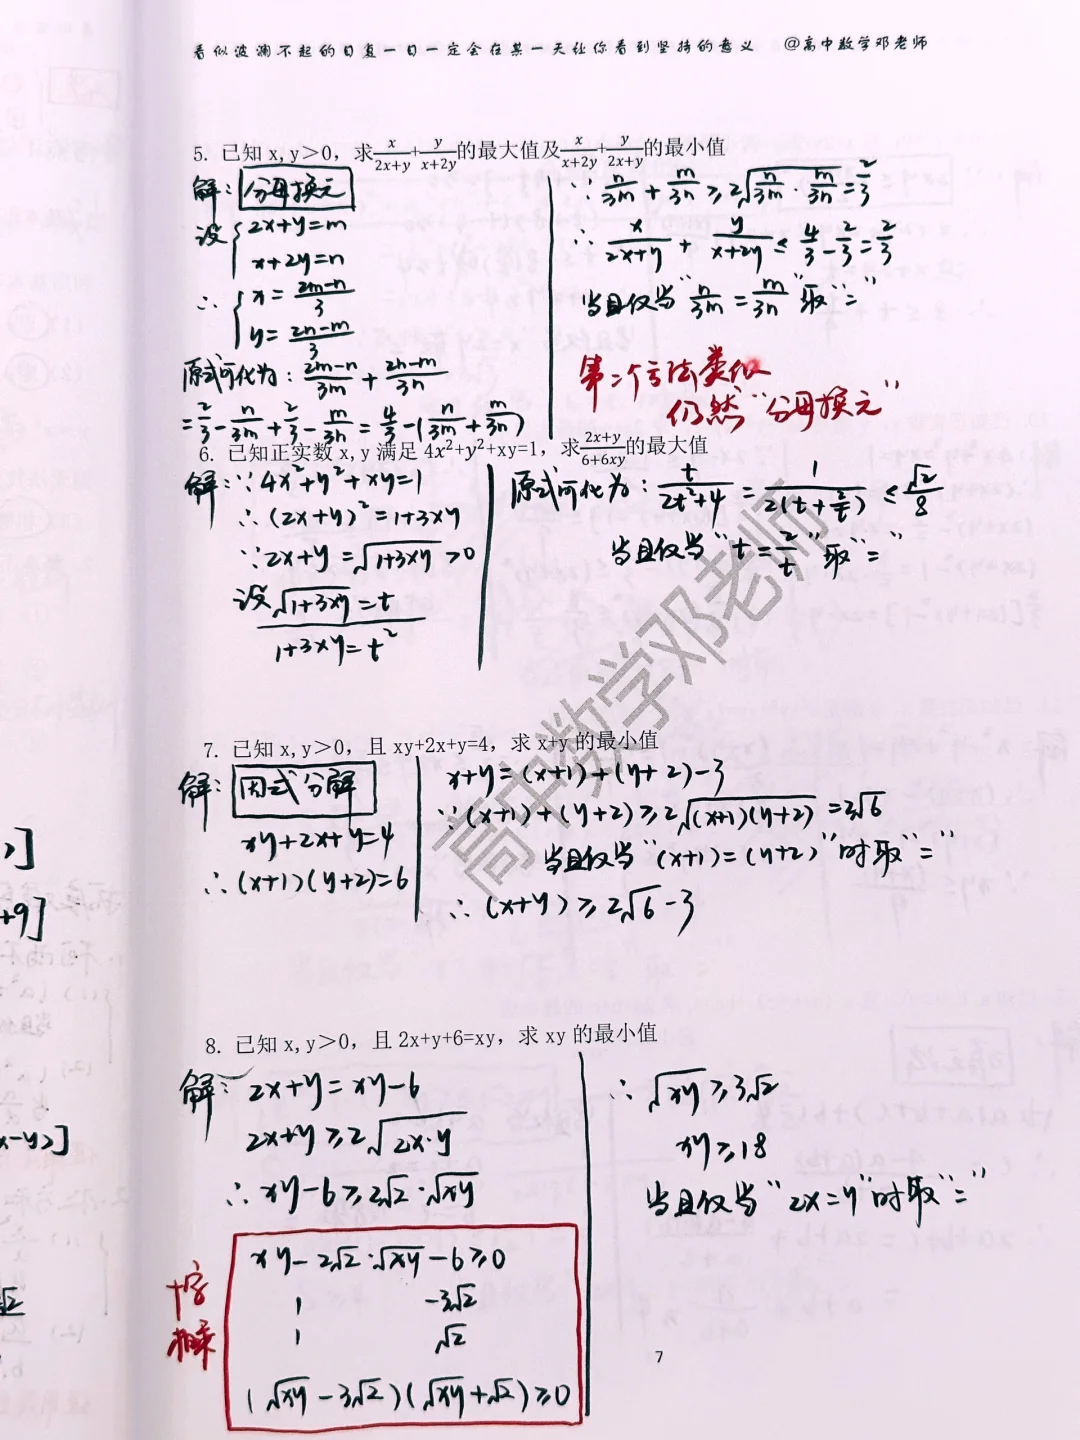 看似波澜不起的日复一日一定会在某一天让你看到坚持的意义 @高中数学邓老师
5. 已知 x,y＞0，求x/(2x+y)+y/(x+2y)的最大值及x/(x+2y)+y/(2x+y)的最小值
解：分母换元
设{2x+y=m
x+2y=n
∴{x=(2m-n)/3
y=(2n-m)/3
原式可化为：(2m-n)/3m+(2n-m)/3n
=2/3-n/3m+2/3-m/3n=4/3-(n/3m+m/3n)
∵n/3m+m/3n≥2√(n/3m·m/3n)=2/3
∴x/(2x+y)+y/(x+2y)≤4/3-2/3=2/3
当且仅当“n/3m=m/3n”取“=”
第二个方法类似
仍然“分母换元”
6. 已知正实数 x,y 满足 4x²+y²+xy=1，求(2x+y)/(6+6xy)的最大值
解：∵4x²+y²+xy=1
∴(2x+y)²=1+3xy
∵2x+y=√(1+3xy)>0
设√(1+3xy)=t
1+3xy=t²
原式可化为：t/(2t²+4)=1/(2(t+2/t))≤√2/8
当且仅当“t=2/t”取“=”
7. 已知 x,y＞0，且 xy+2x+y=4，求 x+y 的最小值
解：因式分解
xy+2x+y=4
∴(x+1)(y+2)=6
x+y=(x+1)+(y+2)-3
∵(x+1)+(y+2)≥2√((x+1)(y+2))=2√6
当且仅当“(x+1)=(y+2)”时取“=”
∴(x+y)≥2√6-3
8. 已知 x,y＞0，且 2x+y+6=xy，求 xy 的最小值
解：2x+y=xy-6
2x+y≥2√(2x·y)
∴xy-6≥2√2·√xy
十字
相乘
xy-2√2·√xy-6≥0
1 -3√2
1 √2
(√xy-3√2)(√xy+√2)≥0
∴√xy≥3√2
xy≥18
当且仅当“2x=y”时取“=”
高中数学邓老师
7